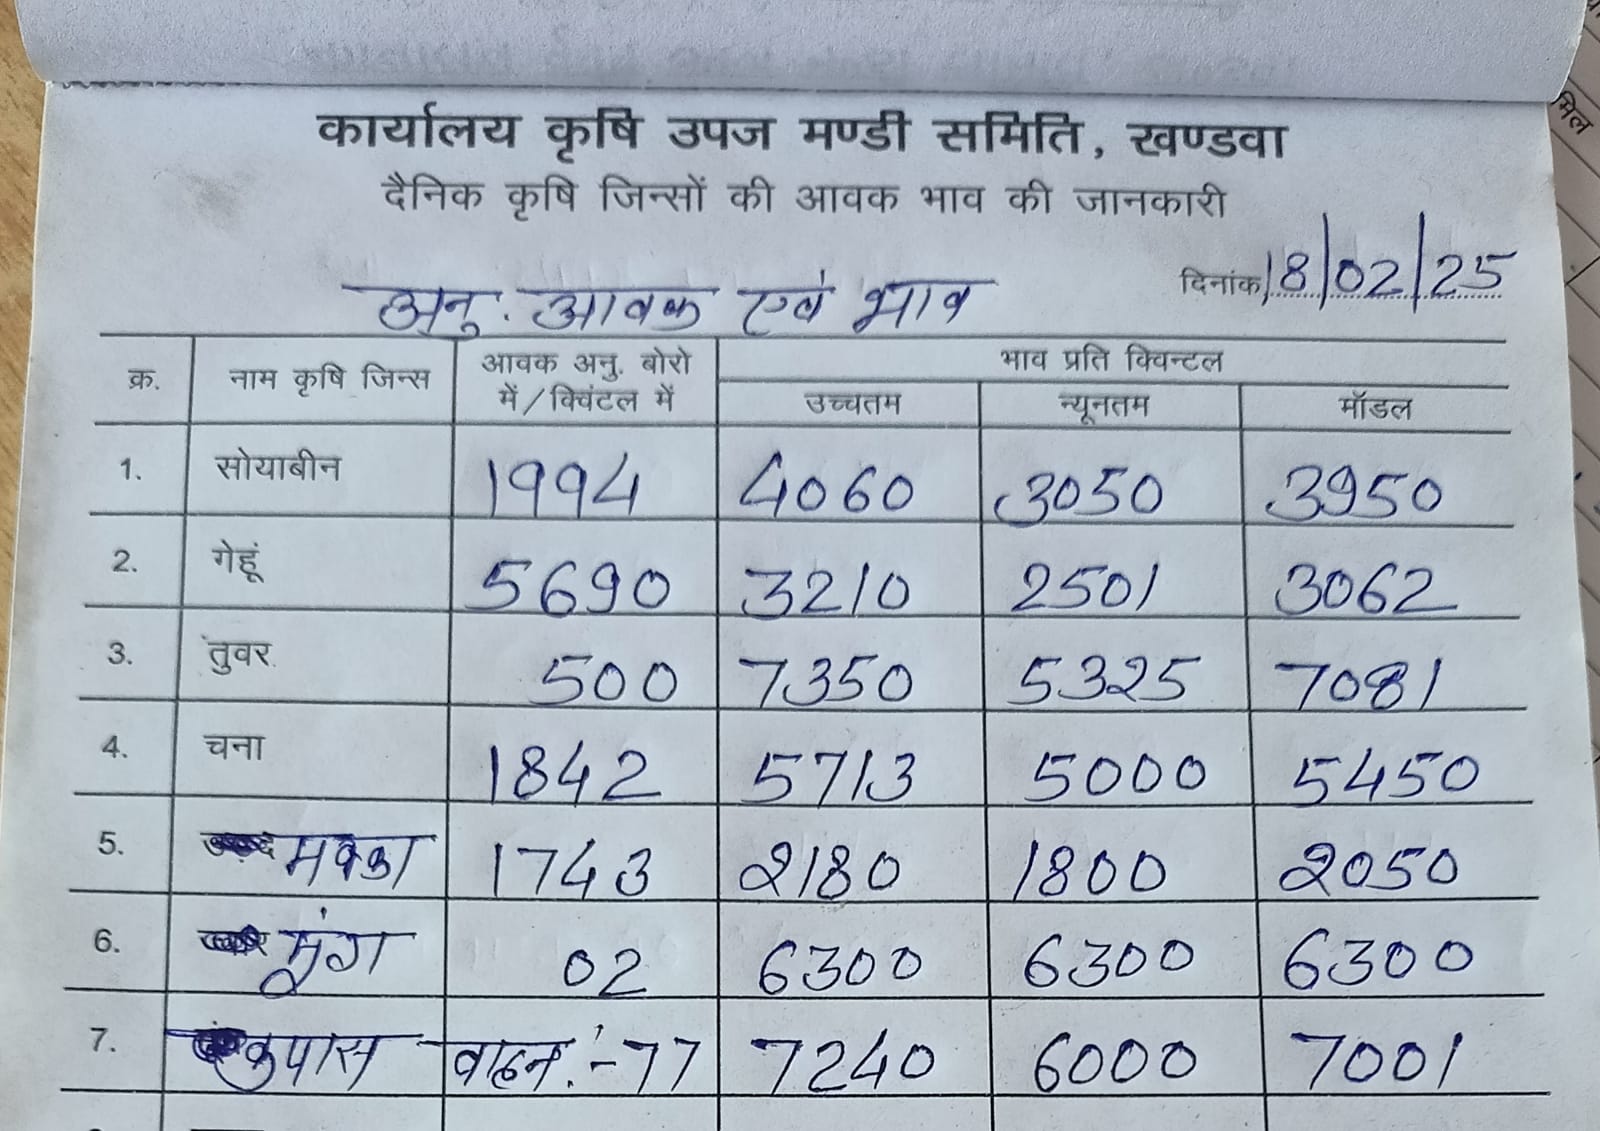 कार्यालय कृषि उपज मण्डी समिति, खण्डवा
दैनिक कृषि जिन्सों की आवक भाव की जानकारी
दिनांक 18/02/25
अनु. आवक एवं भाव
क्र. नाम कृषि जिन्स आवक अनु. बोरो में/क्विंटल में भाव प्रति क्विन्टल
उच्चतम न्यूनतम मॉडल
1. सोयाबीन 1994 4060 3050 3950
2. गेहूं 5690 3210 2501 3062
3. तुवर 500 7350 5325 7081
4. चना 1842 5713 5000 5450
5. मक्का 1743 2180 1800 2050
6. मूंग 02 6300 6300 6300
7. कपास वाहन :- 77 7240 6000 7001
मिल